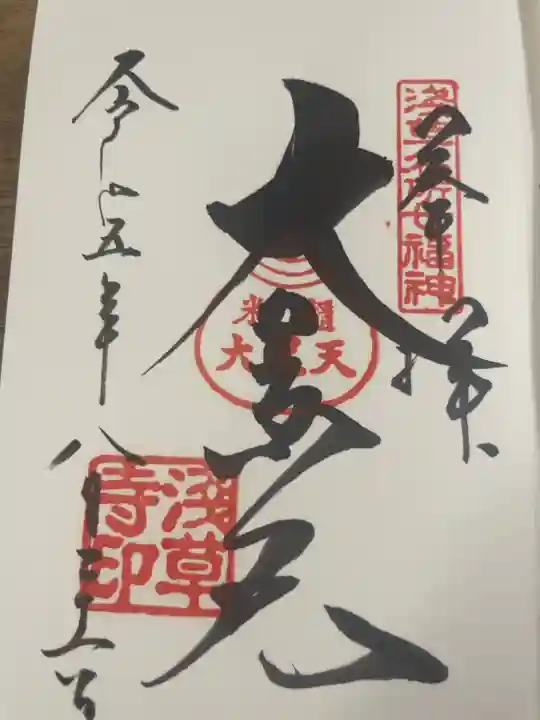 奉拝
浅草名所七福神
大黒天
米櫃
大黒天
令和五年八月三十一日
浅草
寺印